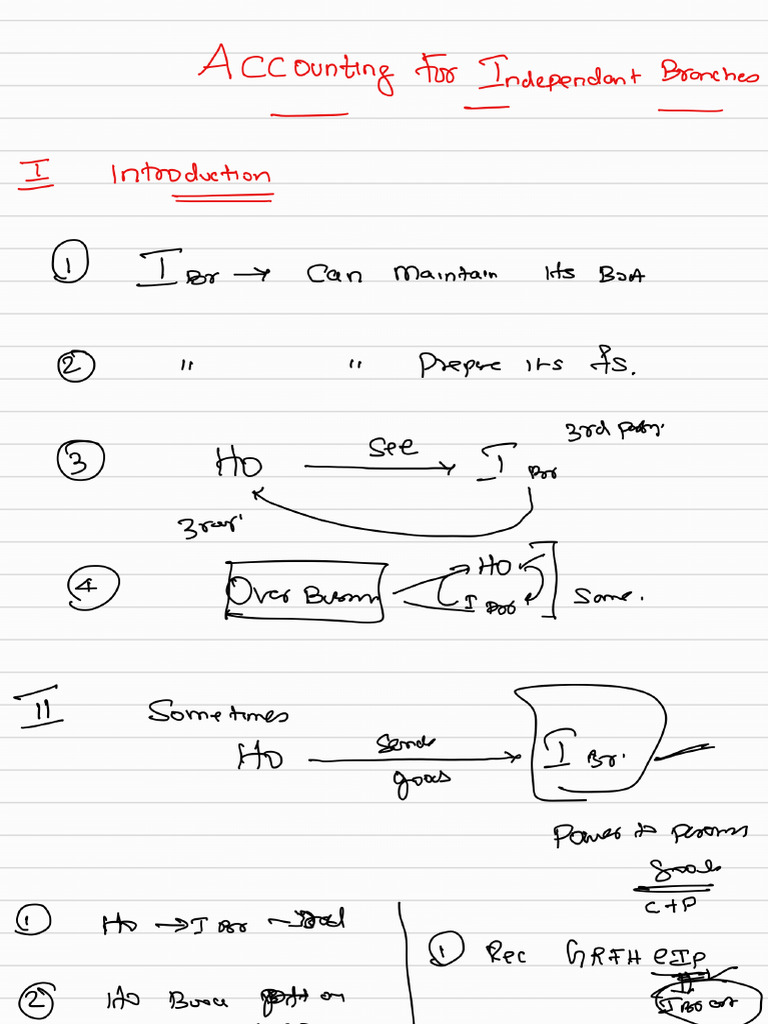 Accounting for Independant Branches
I Introduction
① I Br → Can maintain its BOA
② " " Prepare its FS.
③ HO see → I Br 3rd party.
④ Over HO I Br Same.
II Sometimes
HO sends goods → I Br.
Power to
goods
C+P
① HO → I Br
① Rec GRFH @ IP
② HO